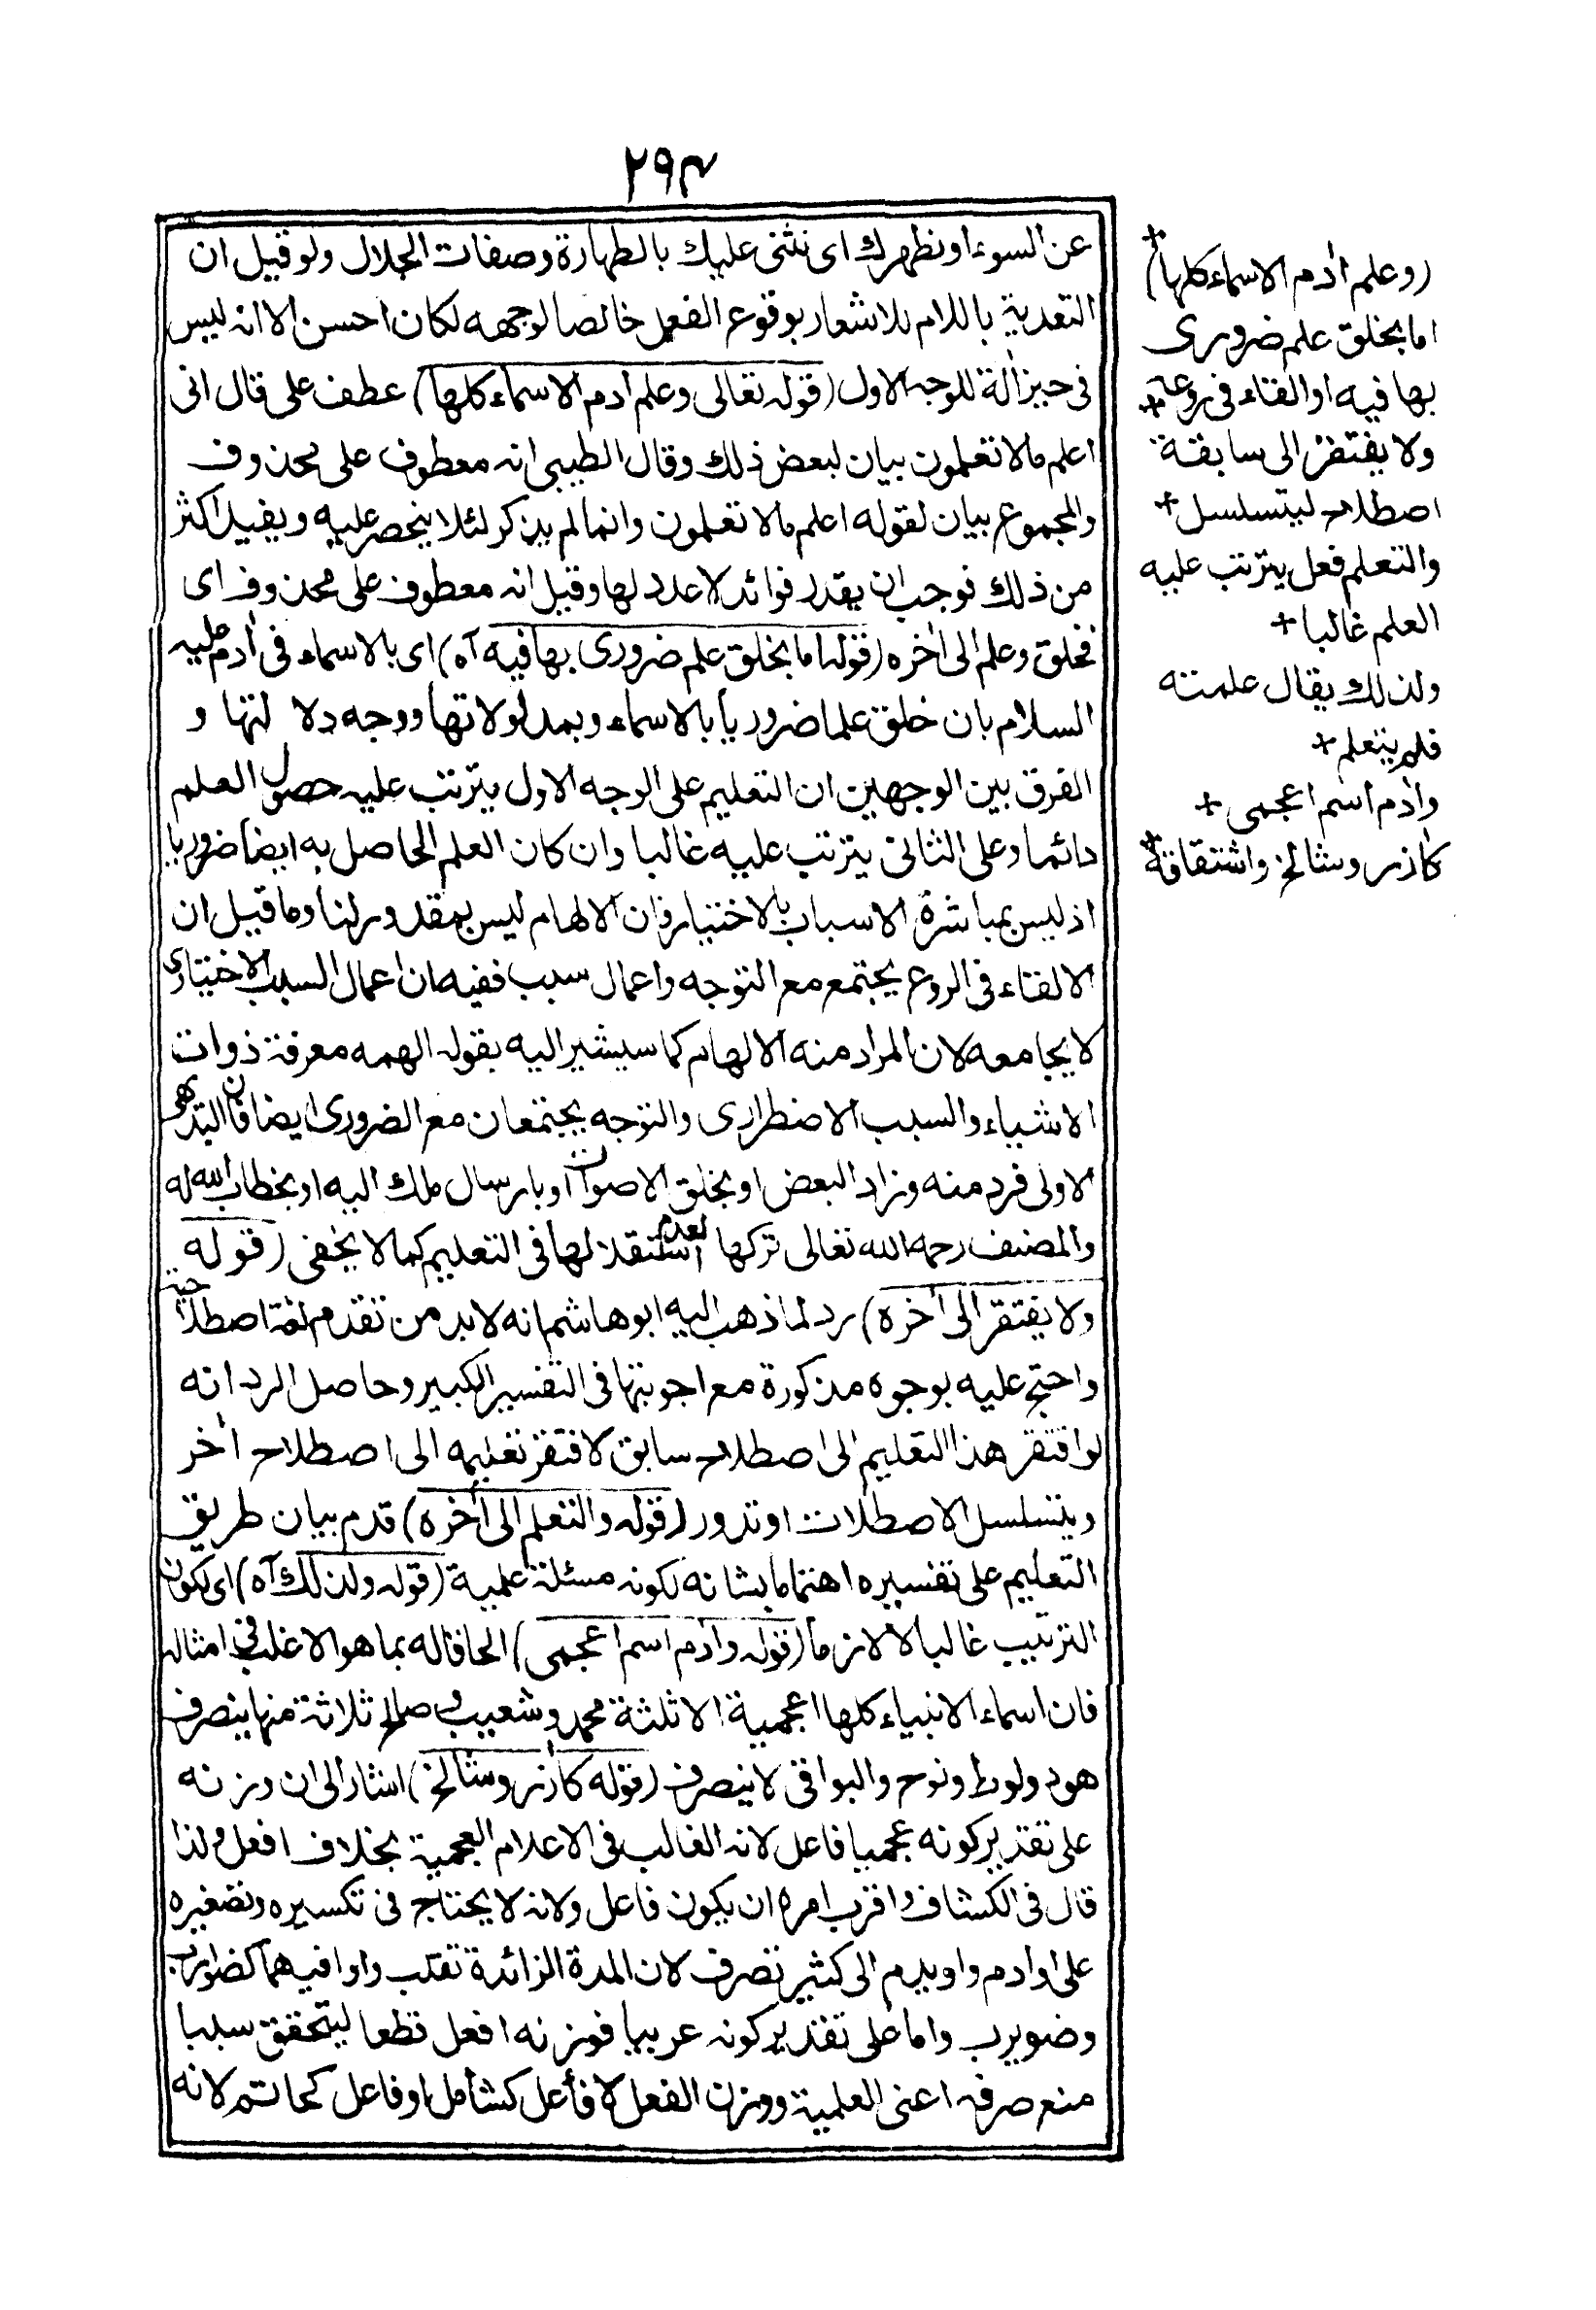 ٢٩٣
عن السوء او نطهرك اى نثنى عليك بالطهارة وصفات الجلال ولو قيل ان
التعدية باللام للاشعار بوقوع الفعل خالصا لوجهه لكان احسن الا انه ليس
فى حيز ألة للوجه الاول (قوله تعالى وعلم أدم الاسماء كلها) عطف على قال انى
اعلم مالا تعلمون بيان لبعض ذلك وقال الطيبى انه معطوف على محذوف
والمجموع بيان لقوله اعلم مالا تعلمون وانما لم يذكر لئلا ينحصر عليه ويفيد اكثر
من ذلك فوجب ان يقدر فوائد لا عدد لها وقيل انه معطوف على محذوف اى
فخلق وعلم الى أخره (قوله اما بخلق علم ضرورى بها فيه آه) اى بالاسماء فى أدم عليه
السلام بان خلق علما ضروريا بالاسماء وبمدلولاتها ووجه دلالتها و
الفرق بين الوجهين ان التعليم على الوجه الاول يترتب عليه حصول العلم
دائما وعلى الثانى يترتب عليه غالبا وان كان العلم الحاصل به ايضا ضروريا
اذ ليس بمباشرة الاسباب بالاختيار فان الالهام ليس بمقدور لنا وما قيل ان
الالقاء فى الروع يجتمع مع التوجه واعمال سبب ففيه ان اعمال السبب الاختيارى
لا يجامعه لان المراد منه الالهام كما سيشير اليه بقوله الهمه معرفة ذوات
الاشياء والسبب الاضطرارى والتوجه يجتمعان مع الضرورى ايضا فان البديهى
الاولى فرد منه وزاد البعض او بخلق الاصوات او بارسال ملك اليه او بخطاب الله له
والمصنف رحمه الله تعالى تركها لعدم استقلالها فى التعليم كما لا يخفى (قوله
ولا يفتقر الى أخره) رد لما ذهب اليه ابو هاشم انه لا بد من تقدم لغة اصطلاحية
واحتج عليه بوجوه مذكورة مع اجوبتها فى التفسير الكبير وحاصل الرد انه
لو افتقر هذا التعليم الى اصطلاح سابق لافتقر تعليمه الى اصطلاح أخر
ويتسلسل الاصطلات او تدور (قوله والتعلم الى أخره) قدم بيان طريق
التعليم على تفسيره اهتماما بشانه لكونه مسئلة علمية (قوله ولذلك آه) اى لكون
الترتيب غالبا لا لازما (قوله وأدم اسم اعجمى) الحاقا له بما هو الاغلب فى امثاله
فان اسماء الانبياء كلها اعجمية الا ثلثة محمد وشعيب و صالح ثلاثة منها ينصرف
هود ولوط ونوح والبواقى لا ينصرف (قوله كأزر وشالخ) اشار الى ان وزنه
على تقدير كونه عجميا فاعل لانه الغالب فى الاعلام العجمية بخلاف افعل ولذا
قال فى الكشاف واقرب امره ان يكون فاعل ولانه لا يحتاج فى تكسيره وتصغيره
على اوادم واويدم الى كثير تصرف لان المدة الزائدة تقلب واوا فيهما كضوارب
وضويرب واما على تقدير كونه عربيا فوزنه افعل قطعا ليتحقق سببا
منع صرفه اعنى العلمية ووزن الفعل لا فأعل كشأمل او فاعل كخاتم لانه
(وعلم أدم الاسماء كلها)+
اما بخلق علم ضرورى
بها فيه او القاء فى روعه+
ولا يفتقر الى سابقة
اصطلاح ليتسلسل+
والتعلم فعل يترتب عليه
العلم غالبا+
ولذلك يقال علمته
فلم يتعلم+
وأدم اسم اعجمى+
كأزر وشالخ واشتقاقه+